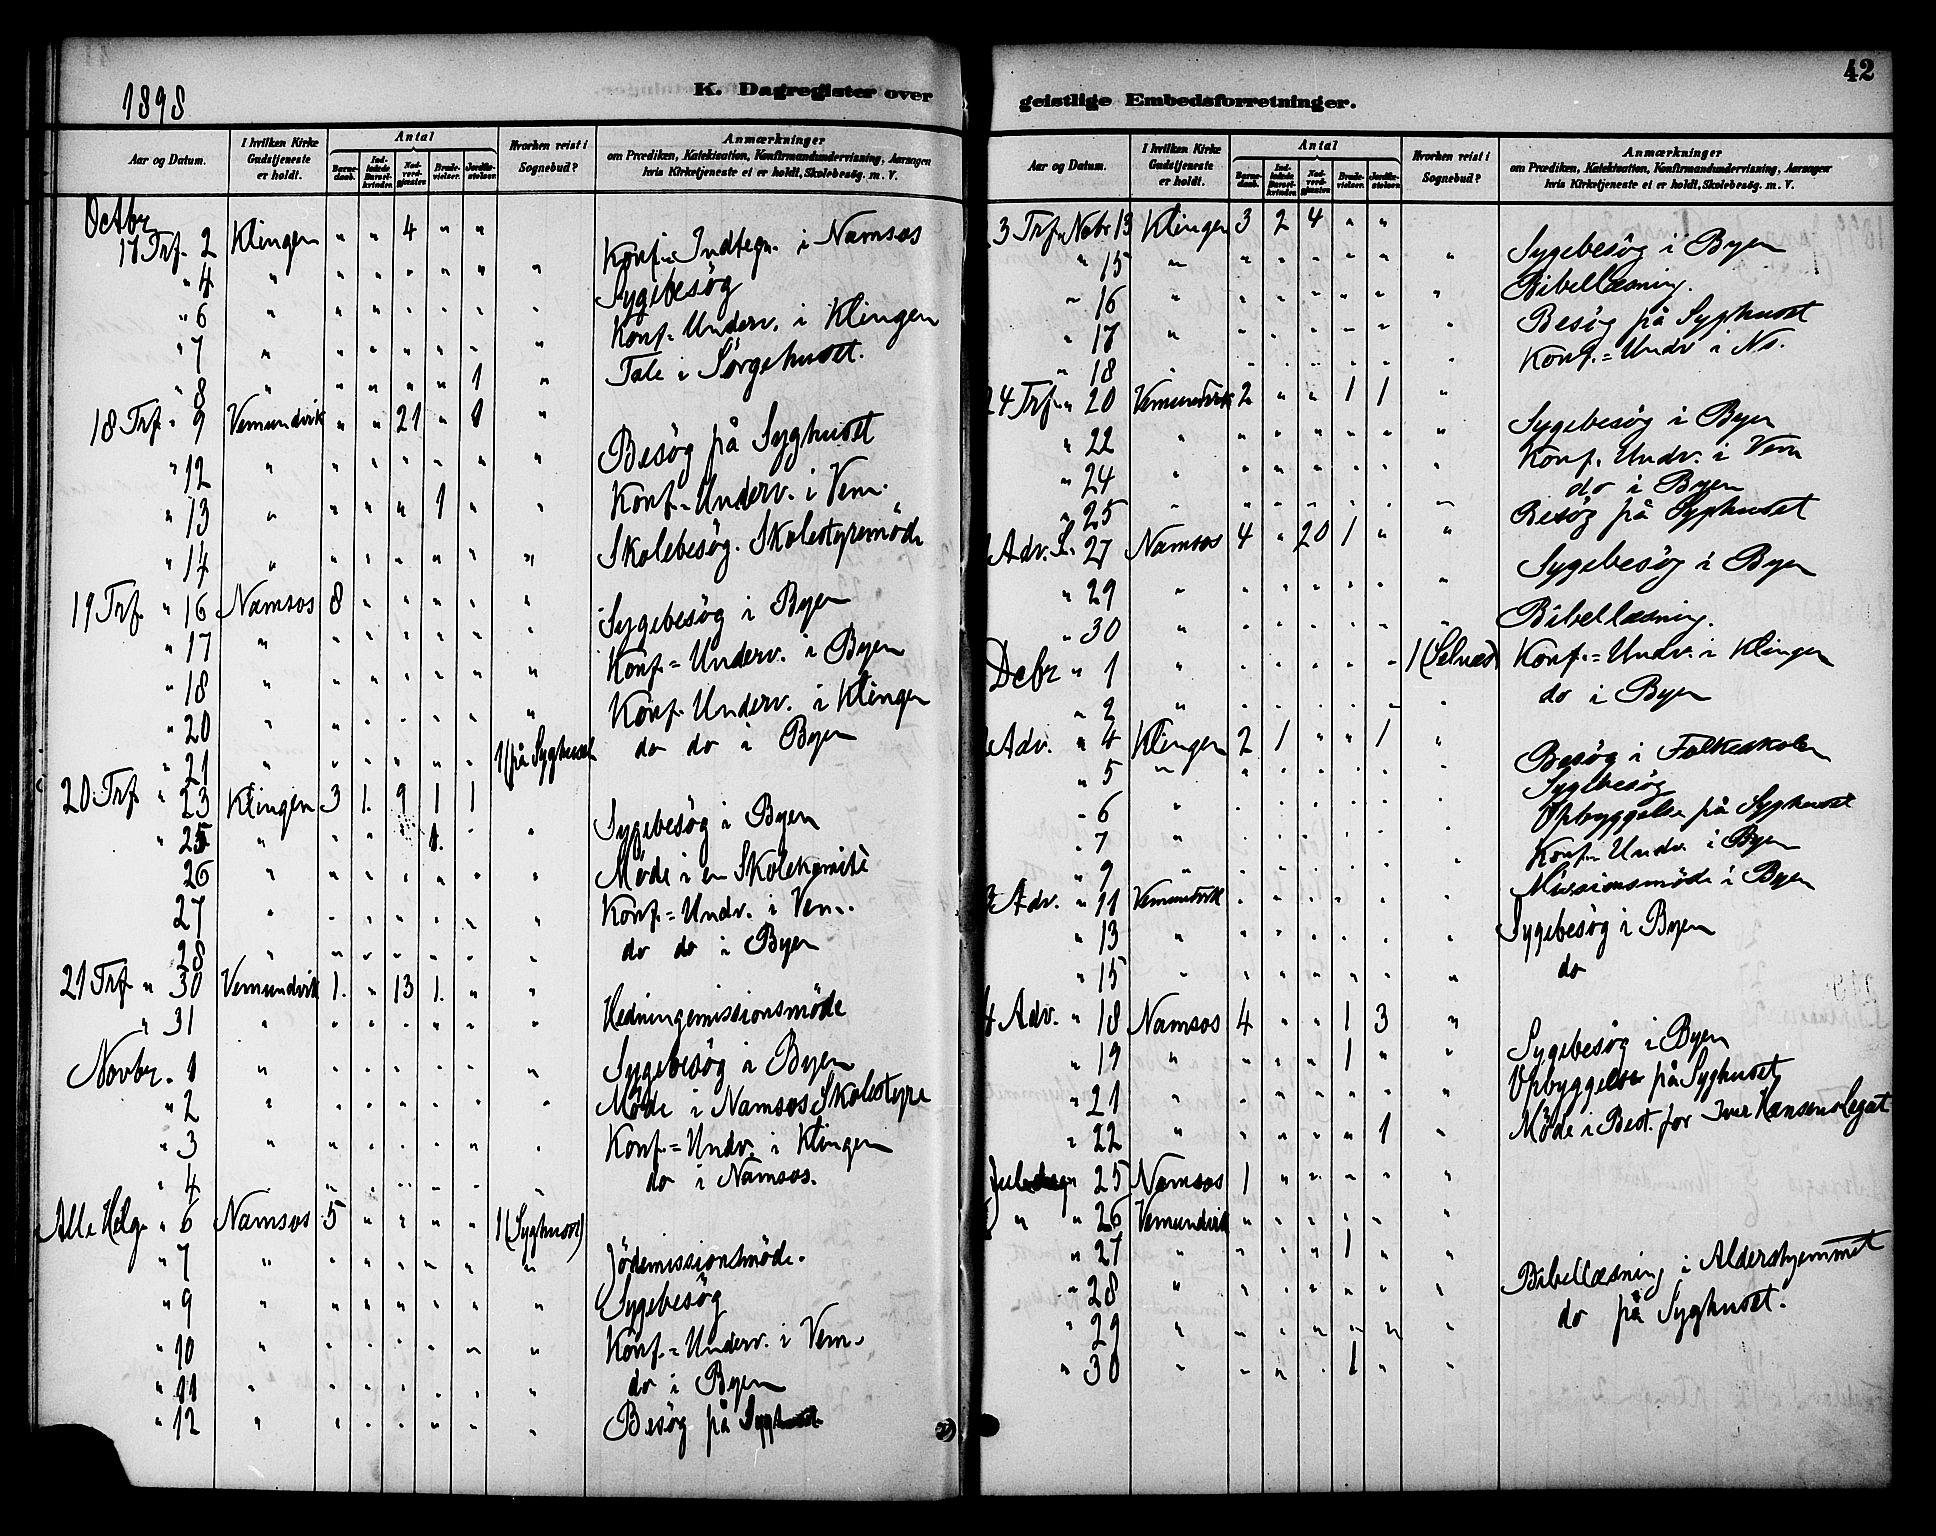 1898
K. Dagregister over
Aar og Datum. I hvilken Kirke Gudstjeneste er holdt. Antal Barnedaab. Indledede Barselkvinder. Nadverdgjæster. Brudevielser. Jordfæstelser. Hvorhen reist i Sognebud? Anmærkninger om Prædiken, Katekisation, Konfirmandundervisning, Aarsagen hvis Kirketjeneste ei er holdt, Skolebesøg. m. V.
Octbr
17 Trf. 2 Klingen " " 4 " "
Konf.-Indtegn. i Namsos
" 4 " " " " " " "
Sygebesøg
" 6 " " " " " " "
Konf.-Underv. i Klingen
" 7 " " " " " " "
Tale i Sørgehuset.
" 8 " " " " " 1 "
18 Trf. " 9 Vemundvik " " 21 " 1 "
Besøg på Syghuset
" 12 " " " " " " "
Konf.-Underv. i Vem.
" 13 " " " " 1 " "
Skolebesøg. Skolestyremöde
" 14 " " " " " " "
19 Trf. " 16 Namsos 8 " " " " "
Sygebesøg i Byen
" 17 " " " " " " "
Konf.=Underv. i Byen
" 18 " " " " " " "
Konf.-Underv. i Klingen
" 20 " " " " " " "
do do i Byen
" 21 " " " " " " 1 (på Syghuset
20 Trf. " 23 Klingen 3 1. 9 1 1
Sygebesøg i Byen
" 25 " " " " 1. " "
Møde i en Skolekomité
26 " " " " " " "
Konf.=Undv. i Vem.
27 " " " " " " "
do do i Byen
28 " " " " " " "
21 Trf. " 30 Vemundvik 1. " 13 1. " "
Hedningemissionsmöde
" 31 " " " " " " "
Novbr. 1 " " " " " " "
Sygebesøg i Byen
" 2 " " " " " " "
Møde i Namsos Skolestyre
" 3 " " " " " " "
Konf.=Undv. i Klingen
" 4 " " " " " " "
do i Namsos.
Alle Helg. " 6 Namsos 5 " " " " 1 (Syghuset)
" 7 " " " " " " "
Jödemissionsmöde.
" 9 " " " " " " "
Sygebesøg
" 10 " " " " " " "
Konf.=Underv. i Vem.
" 11 " " " " " " "
do i Byen
" 12 " " " " " " "
Besøg på Syghuset
42
geistlige Embedsforretninger.
Aar og Datum. I hvilken Kirke Gudstjeneste er holdt. Antal Barnedaab. Indledede Barselkvinder. Nadverdgjæster. Brudevielser. Jordfæstelser. Hvorhen reist i Sognebud? Anmærkninger om Prædiken, Katekisation, Konfirmandundervisning, Aarsagen hvis Kirketjeneste ei er holdt, Skolebesøg. m. V.
3 Trf. Nobr 13 Klingen 3 2 4 " "
Sygebesøg i Byen
" 15 " " " " " " "
Bibellæsning.
" 16 " " " " " " "
Besøg på Syghuset
" 17 " " " " " " "
Konf.=Undv i Ns.
" 18 " " " " " " "
24 Trf. " 20 Vemundvik 2 " " 1 1 "
Sygebesøg i Byen
" 22 " " " " " " "
Konf. Undv. i Vem
" 24 " " " " " " "
do i Byen
" 25 " " " " " " "
Besøg på Syghuset
Adv. S. 27 Namsos 4 " 20 1 " "
Sygebesøg i Byen
" 29 " " " " " " "
" 30 " " " " " " "
Bibellæsning.
Debr " 1 " " " " " " 1 (Selnes)
Konf.=Undv. i Klingen
" 2 " " " " " " "
do i Byen
Adv. " 4 Klingen 2 1 " " 1 "
Besøg i Folkeskolen
" 5 " " " " " " "
Sygebesøg
" 6 " " " " " " "
Opbyggelse på Syghuset
" 7 " " " " " " "
Konf.-Undv. i Byen
" 9 " " " " " " "
Missionsmöde i Byen
3 Adv. " 11 Vemundvik " " " " " "
Sygebesøg i Byen
" 13 " " " " " " "
do
" 15 " " " " " " "
4 Adv. " 18 Namsos 4 " " 1 3 "
Sygebesøg i Byen
" 19 " " " " 1 " "
Opbyggelse på Syghuset
" 21 " " " " " " "
Møde i Best. for Iver Hansens legat
" 22 " " " " " 1 "
Juledag 25 Namsos 1 " " " " "
" " 26 Vemundvik " " " " " "
" 27 " " " " 1 " "
Bibellæsning i Aldershjemmet
" 28 " " " " " " "
do på Syghuset.
" 29 " " " " " " "
" 30 " " " " 1 " "